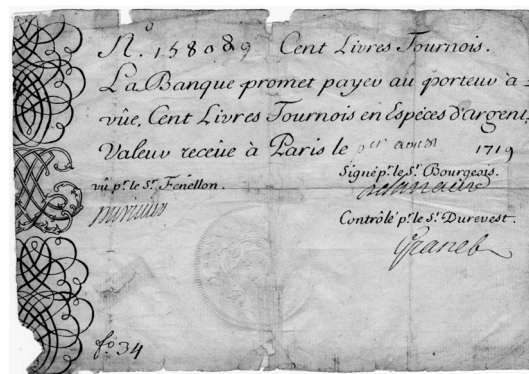 N.º 158089 Cent Livres Tournois.
La Banque promet payer au porteur à
vûe, Cent Livres Tournois en Especes d'argent,
Valeur receüe à Paris le 1719
vû p.r le S.r Fenellon.
Signé p.r le S.r Bourgeois.
Contrôlé p.r le S.r Durevest.
f.o 34